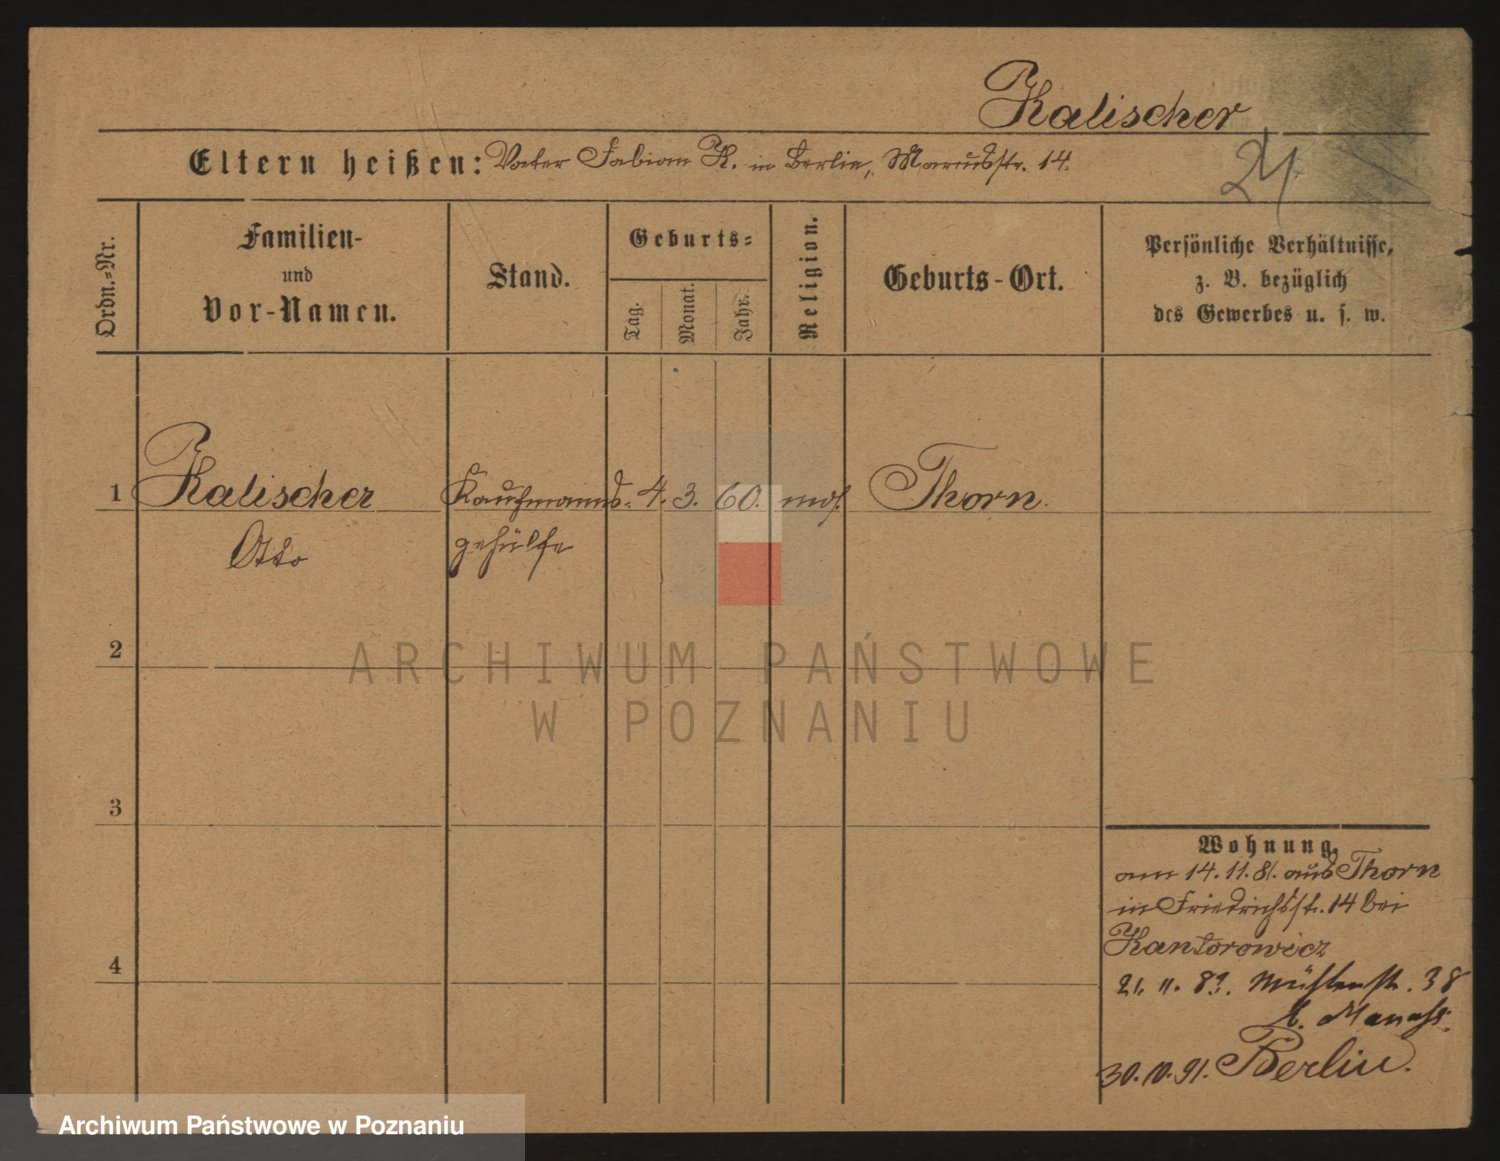 Kalischer
Eltern heißen: Vater Fabian K. in Berlin, Marcusstr. 14.
21.
Ordn.-Nr.
Familien-
und
Vor-Namen.
Stand.
Geburts-
Tag.
Monat.
Jahr.
Religion.
Geburts-Ort.
Persönliche Verhältnisse,
z. B. bezüglich
des Gewerbes u. s. w.
1 Kalischer Kaufmanns- 4. 3. 60. mos. Thorn.
Otto gehülfe
2
3
4
Wohnung.
am 14.11.81. aus Thorn
in Friedrichsstr. 14 bei
Kantorowicz
21. 11. Mühlenstr. 38
b. Manass.
30.10.91. Berlin.
ARCHIWUM PAŃSTWOWE
W POZNANIU
Archiwum Państwowe w Poznaniu